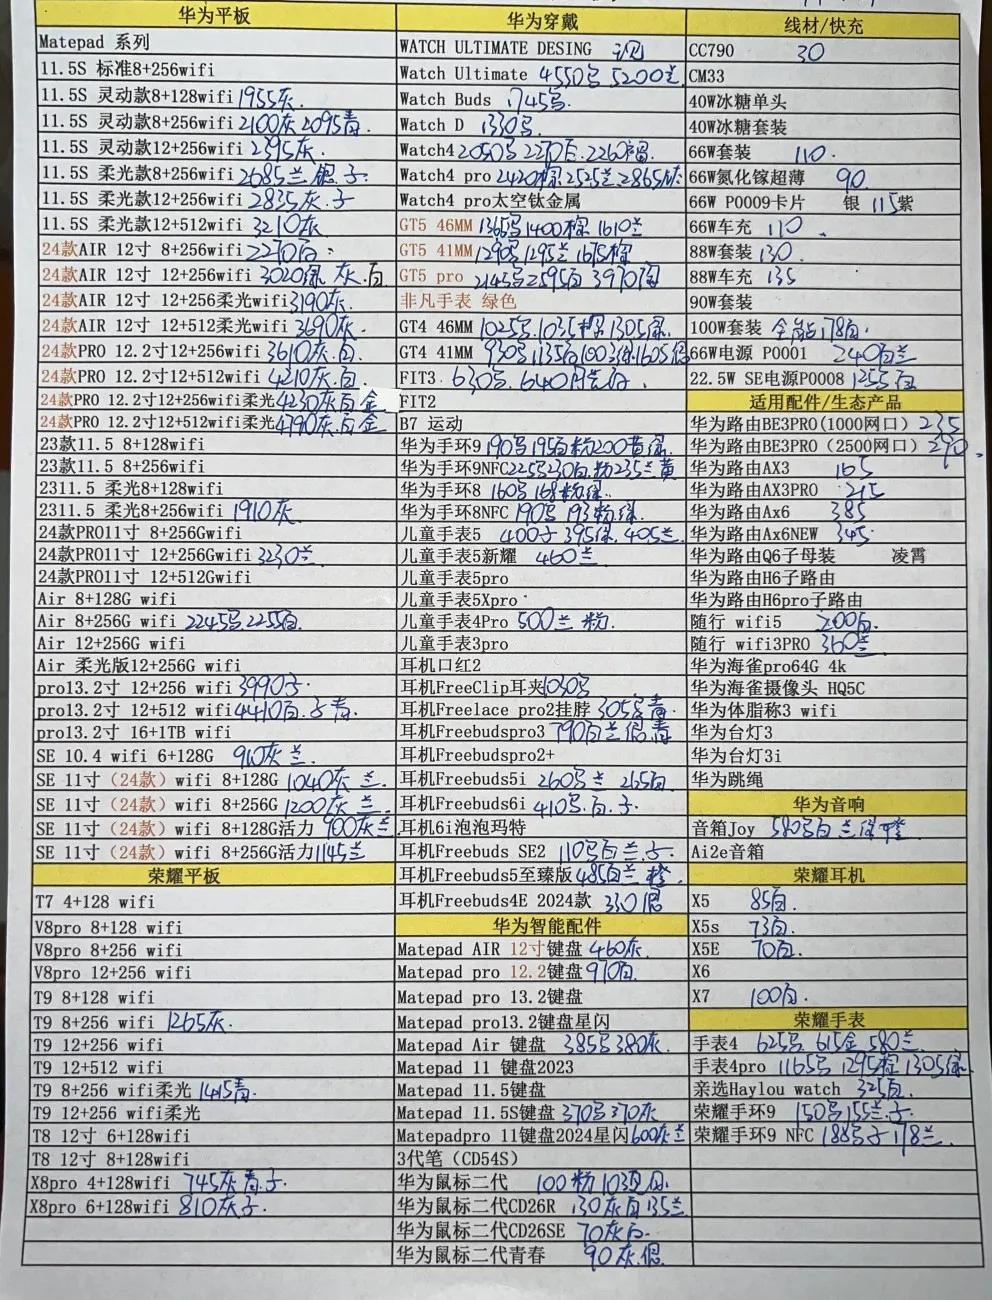 华为平板
Matepad 系列
11.5S 标准8+256wifi
11.5S 灵动款8+128wifi 1955灰.
11.5S 灵动款8+256wifi 2100灰 2095青.
11.5S 灵动款12+256wifi 2395灰.
11.5S 柔光款8+256wifi 2685兰 银 子.
11.5S 柔光款12+256wifi 2835灰.子
11.5S 柔光款12+512wifi 3210灰
24款AIR 12寸 8+256wifi 2270白.
24款AIR 12寸 12+256wifi 3020绿.灰.白
24款AIR 12寸 12+256柔光wifi 3190灰.
24款AIR 12寸 12+512柔光wifi 3690灰.
24款PRO 12.2寸12+256wifi 3610灰.白.
24款PRO 12.2寸12+512wifi 4210灰.白.
24款PRO 12.2寸12+256wifi柔光4230灰白金
24款PRO 12.2寸12+512wifi柔光4790灰.白金
23款11.5 8+128wifi
23款11.5 8+256wifi
2311.5 柔光8+128wifi
2311.5 柔光8+256wifi 1910灰.
24款PRO11寸 8+256Gwifi
24款PRO11寸 12+256Gwifi 3230兰
24款PRO11寸 12+512Gwifi
Air 8+128G wifi
Air 8+256G wifi 2245 2255白.
Air 12+256G wifi
Air 柔光版12+256G wifi
pro13.2寸 12+256 wifi 3990子.
pro13.2寸 12+512 wifi 4410白.子 青.
pro13.2寸 16+1TB wifi
SE 10.4 wifi 6+128G 910灰 兰.
SE 11寸（24款）wifi 8+128G 1040灰 兰.
SE 11寸（24款）wifi 8+256G 1200灰 兰.
SE 11寸（24款）wifi 8+128G活力 900灰兰
SE 11寸（24款）wifi 8+256G活力 1145兰
荣耀平板
T7 4+128 wifi
V8pro 8+128 wifi
V8pro 8+256 wifi
V8pro 12+256 wifi
T9 8+128 wifi
T9 8+256 wifi 1265灰.
T9 12+256 wifi
T9 12+512 wifi
T9 8+256 wifi柔光 1415青.
T9 12+256 wifi柔光
T8 12寸 6+128wifi
T8 12寸 8+128wifi
X8pro 4+128wifi 745灰 青.子.
X8pro 6+128wifi 810灰子.
华为穿戴
WATCH ULTIMATE DESING 现
Watch Ultimate 4550 5200兰
Watch Buds 1745
Watch D 1330
Watch4 2050 2270白.2260棕.
Watch4 pro 2420棕2525兰2865灰
Watch4 pro太空钛金属
GT5 46MM 1365 1400棕 1610兰
GT5 41MM 1290 1295兰 1675棕
GT5 pro 2145 2595白 3970陶
非凡手表 绿色
GT4 46MM 1025.1035棕1305绿.
GT4 41MM 930 1135白 1003绿.1605银
FIT3. 630.640
FIT2
B7 运动
华为手环9 190 195白粉200黄绿
华为手环9NFC225 230白.粉235兰黄
华为手环8 160 168粉绿.
华为手环8NFC 190 193粉绿.
儿童手表5 400子 395绿.405兰.
儿童手表5新耀 460兰
儿童手表5pro
儿童手表5Xpro
儿童手表4Pro 500兰 粉.
儿童手表3pro
耳机口红2
耳机FreeClip耳夹1030
耳机Freelace pro2挂脖 305 青.
耳机Freebudspro3 790白兰银青
耳机Freebudspro2+
耳机Freebuds5i 260 兰 265白
耳机Freebuds6i 410.白.子.
耳机6i泡泡玛特
耳机Freebuds SE2 110 白兰.子.
耳机Freebuds5至臻版485白兰 橙.
耳机Freebuds4E 2024款 330银
华为智能配件
Matepad AIR 12寸键盘 460灰.
Matepad pro 12.2键盘 910白.
Matepad pro 13.2键盘
Matepad pro13.2键盘星闪
Matepad Air 键盘 385 380灰.
Matepad 11 键盘2023
Matepad 11.5键盘
Matepad 11.5S键盘 370 370灰
Matepadpro 11键盘2024星闪600灰兰
3代笔（CD54S）
华为鼠标二代 100粉 103
华为鼠标二代CD26R 130灰白 135兰
华为鼠标二代CD26SE 70灰白.
华为鼠标二代青春 90灰.银.
线材/快充
CC790 30
CM33
40W冰糖单头
40W冰糖套装
66W套装 110.
66W氮化镓超薄 90.
66W P0009卡片 银 115紫
66W车充 110.
88W套装 130.
88W车充 135
90W套装
100W套装 全能178白.
66W电源 P0001 240白兰
22.5W SE电源P0008 125 白
适用配件/生态产品
华为路由BE3PRO(1000网口) 235
华为路由BE3PRO（2500网口）290.
华为路由AX3 165
华为路由AX3PRO 215
华为路由Ax6 385
华为路由Ax6NEW 345.
华为路由Q6子母装 凌霄
华为路由H6子路由
华为路由H6pro子路由
随行 wifi5 200白.
随行 wifi3PRO 360兰
华为海雀pro64G 4k
华为海雀摄像头 HQ5C
华为体脂称3 wifi
华为台灯3
华为台灯3i
华为跳绳
华为音响
音箱Joy 580 白 兰 绿橙
Ai2e音箱
荣耀耳机
X5 85白.
X5s 73白.
X5E 70白.
X6
X7 100白.
荣耀手表
手表4 625.615金 580兰.
手表4pro 1165 1295棕1305绿.
亲选Haylou watch 325白.
荣耀手环9 150 155兰.子.
荣耀手环9 NFC 188 子 178兰.